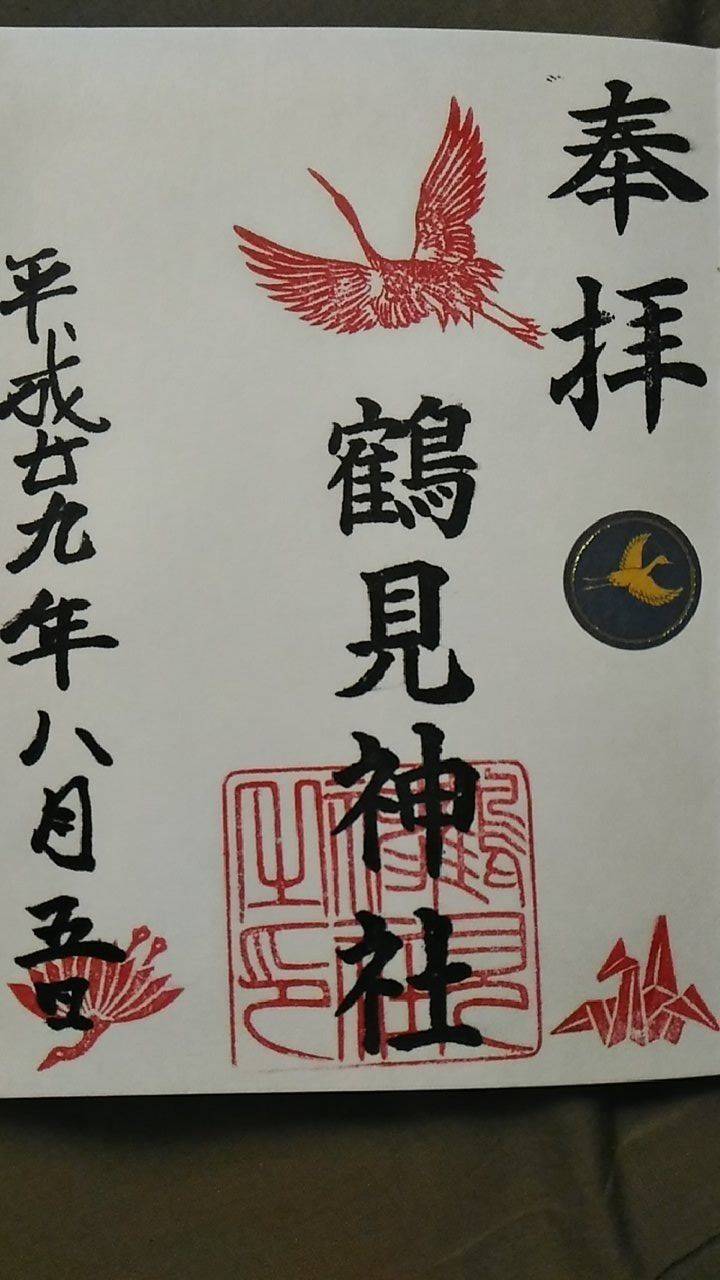 奉拝
鶴見神社
平成廿九年八月五日
鶴見神社之印